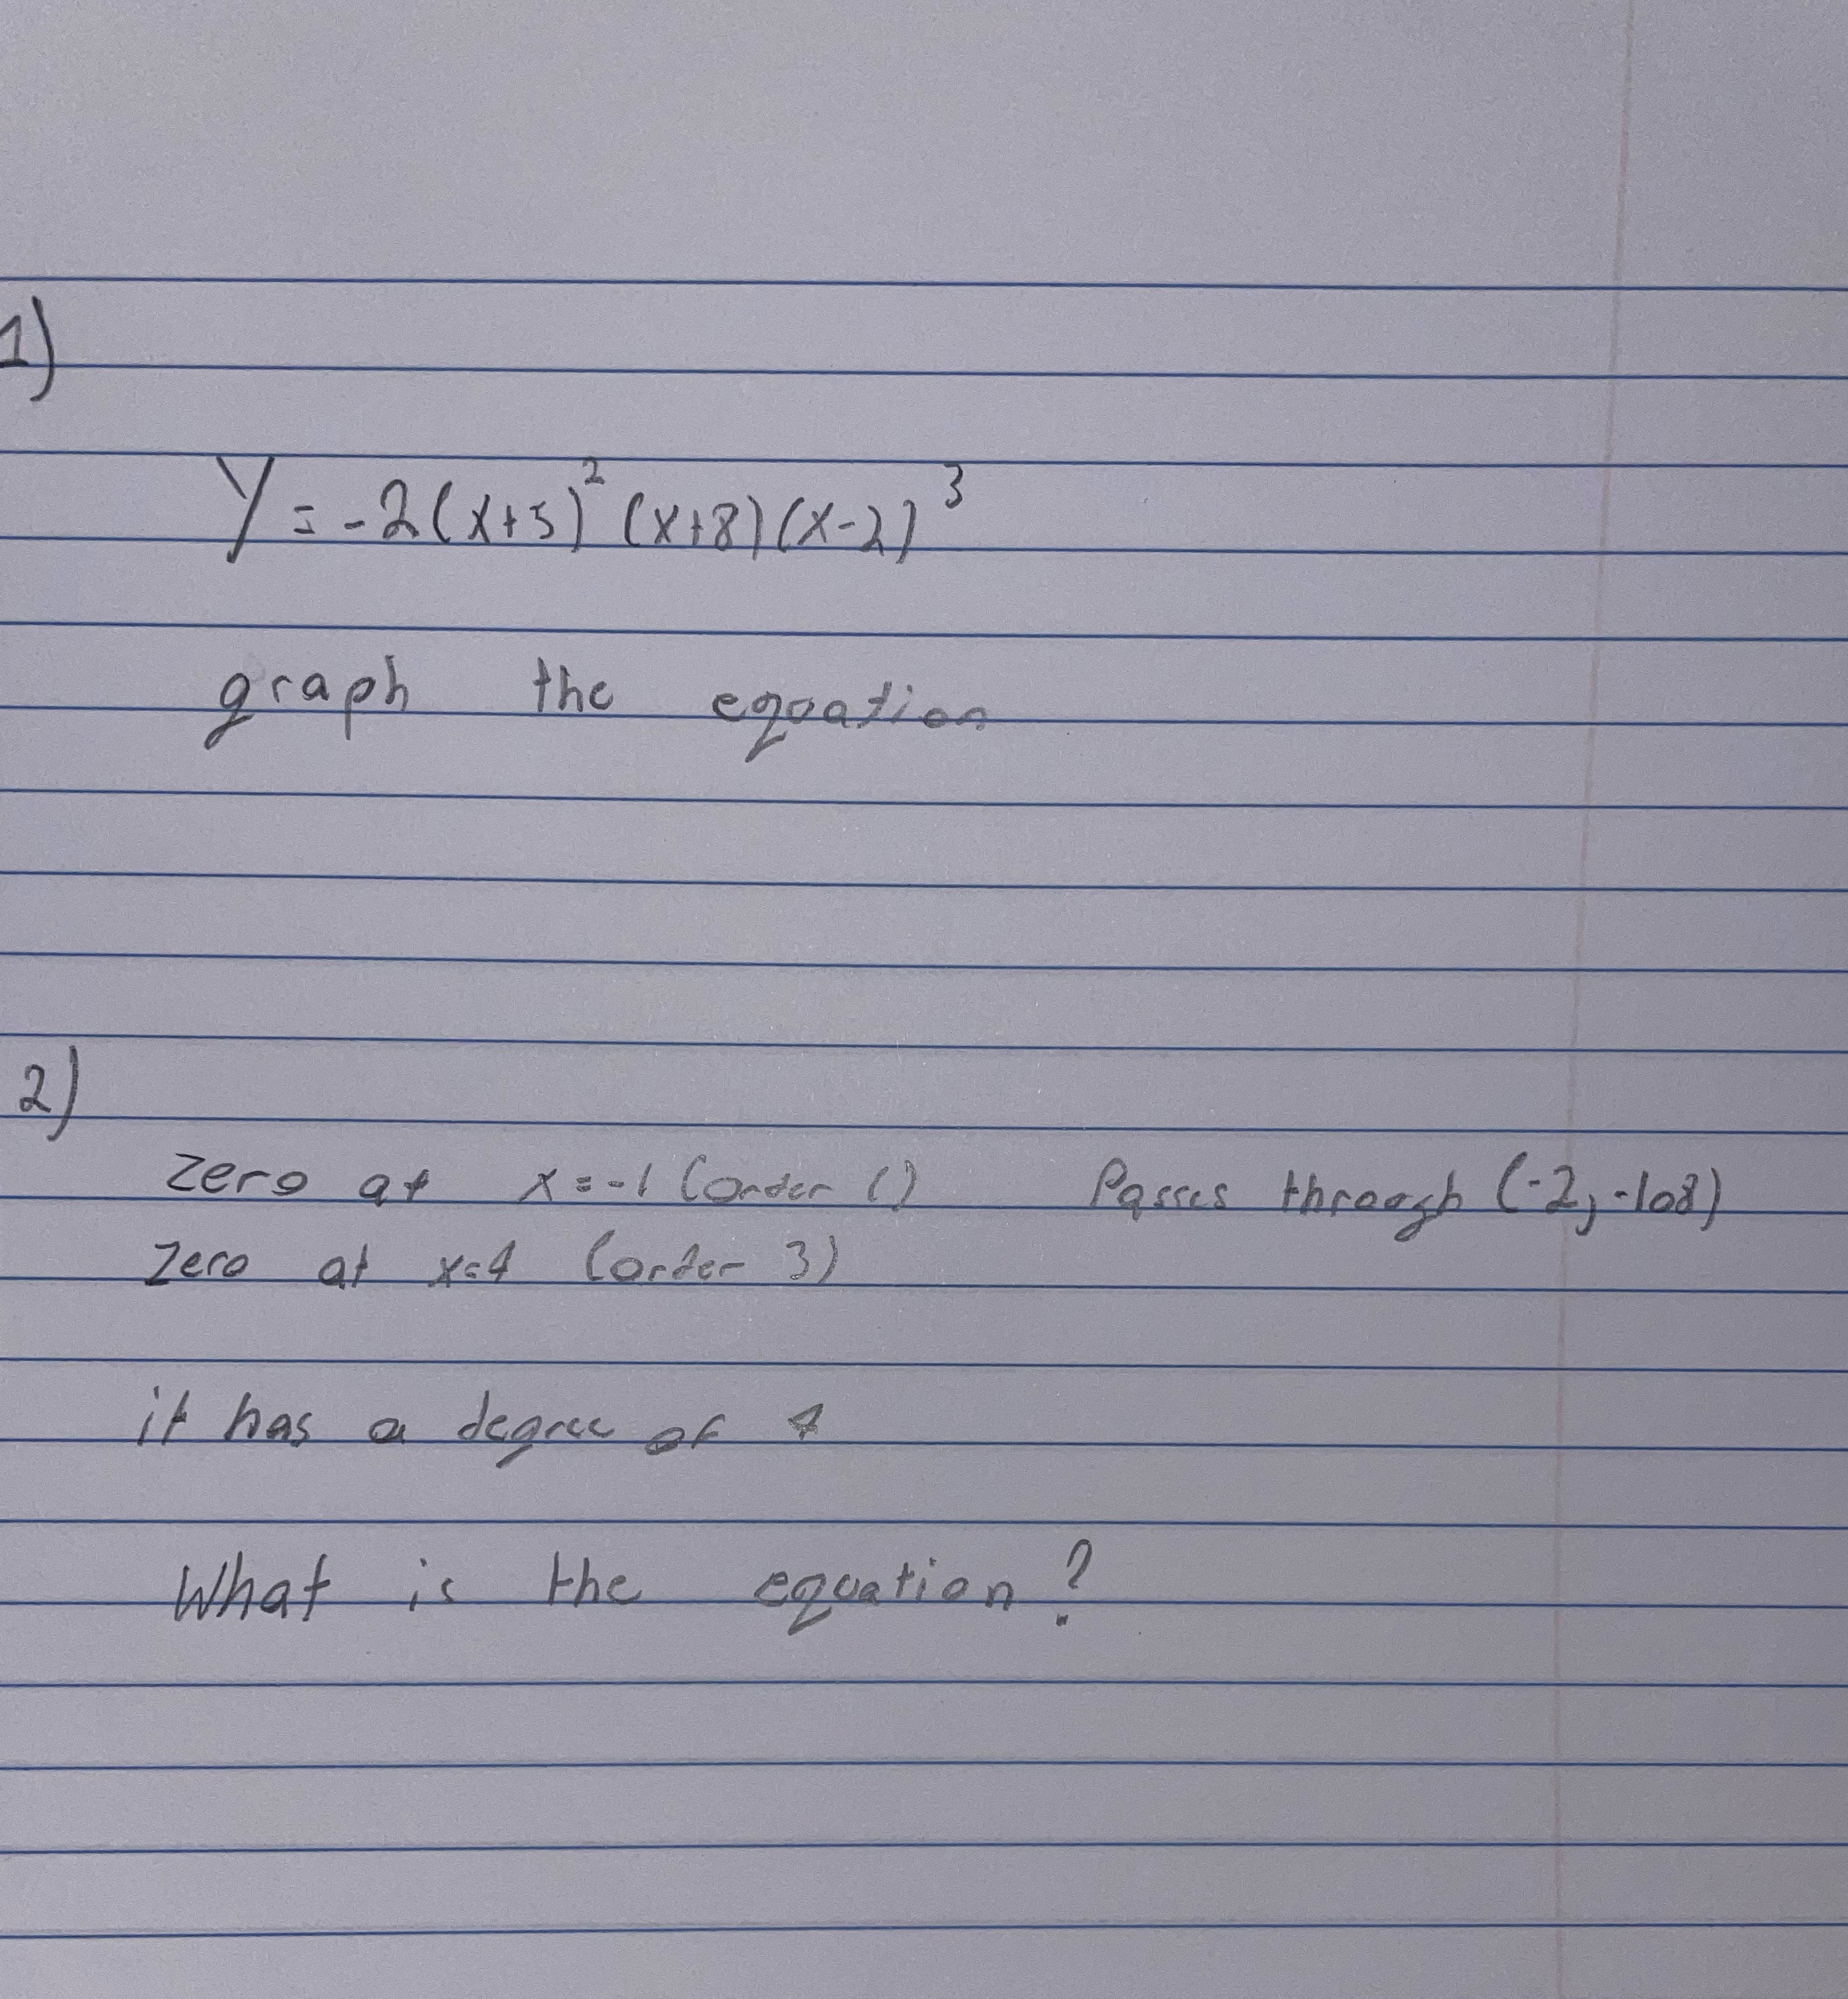 1)
Y = -2(x+5)² (x+8)(x-2)³
graph the equation
2)
zero at x=-1 (order 1) Passes through (-2, -108)
Zero at x=4 (order 3)
it has a degree of 4
What is the equation?